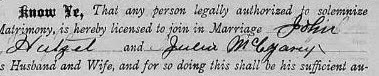 Know Ye, That any person legally authorized to solemnize
Matrimony, is hereby licensed to join in Marriage John
Hutzel and Julia McCzany
s Husband and Wife, and for so doing this shall be his sufficient au-